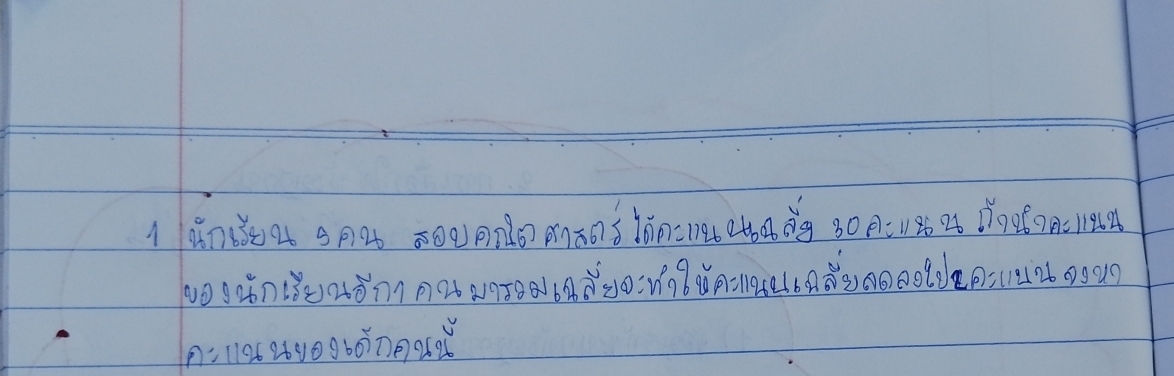 1 นักเรียน 9 คน สอบคณิตศาสตร์ ได้คะแนนเฉลี่ย 30 คะแนน ถ้านำคะแนน
ของนักเรียนอีก1 คน มารวมเฉลี่ยจะทำให้คะแนนเฉลี่ยลดลงไป2คะแนน จงหา
คะแนนของเด็กคนนี้